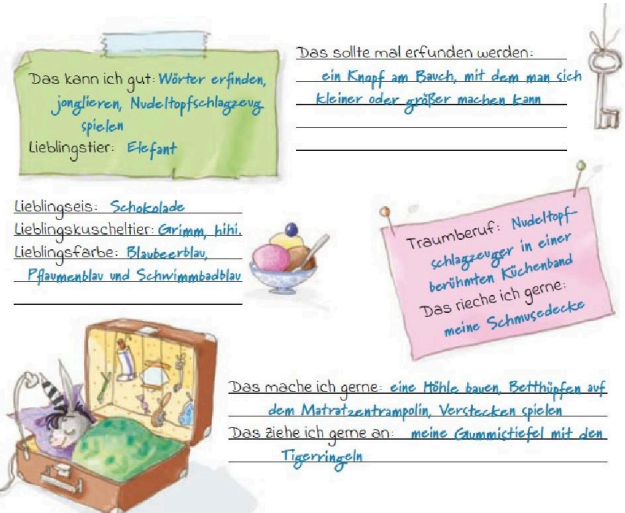 Das kann ich gut: Wörter erfinden,
jonglieren, Nudeltopfschlagzeug
spielen
Lieblingstier: Elefant
Das sollte mal erfunden werden:
ein Knopf am Bauch, mit dem man sich
kleiner oder größer machen kann
Lieblingseis: Schokolade
Lieblingskuscheltier: Grimm, hihi.
Lieblingsfarbe: Blaubeerblau,
Pflaumenblau und Schwimmbadblau
Traumberuf: Nudeltopf-
schlagzeuger in einer
berühmten Küchenband
Das rieche ich gerne:
meine Schmusedecke
Das mache ich gerne: eine Höhle bauen, Betthüpfen auf
dem Matratzentrampolin, Verstecken spielen
Das ziehe ich gerne an: meine Gummistiefel mit den
Tigerringeln